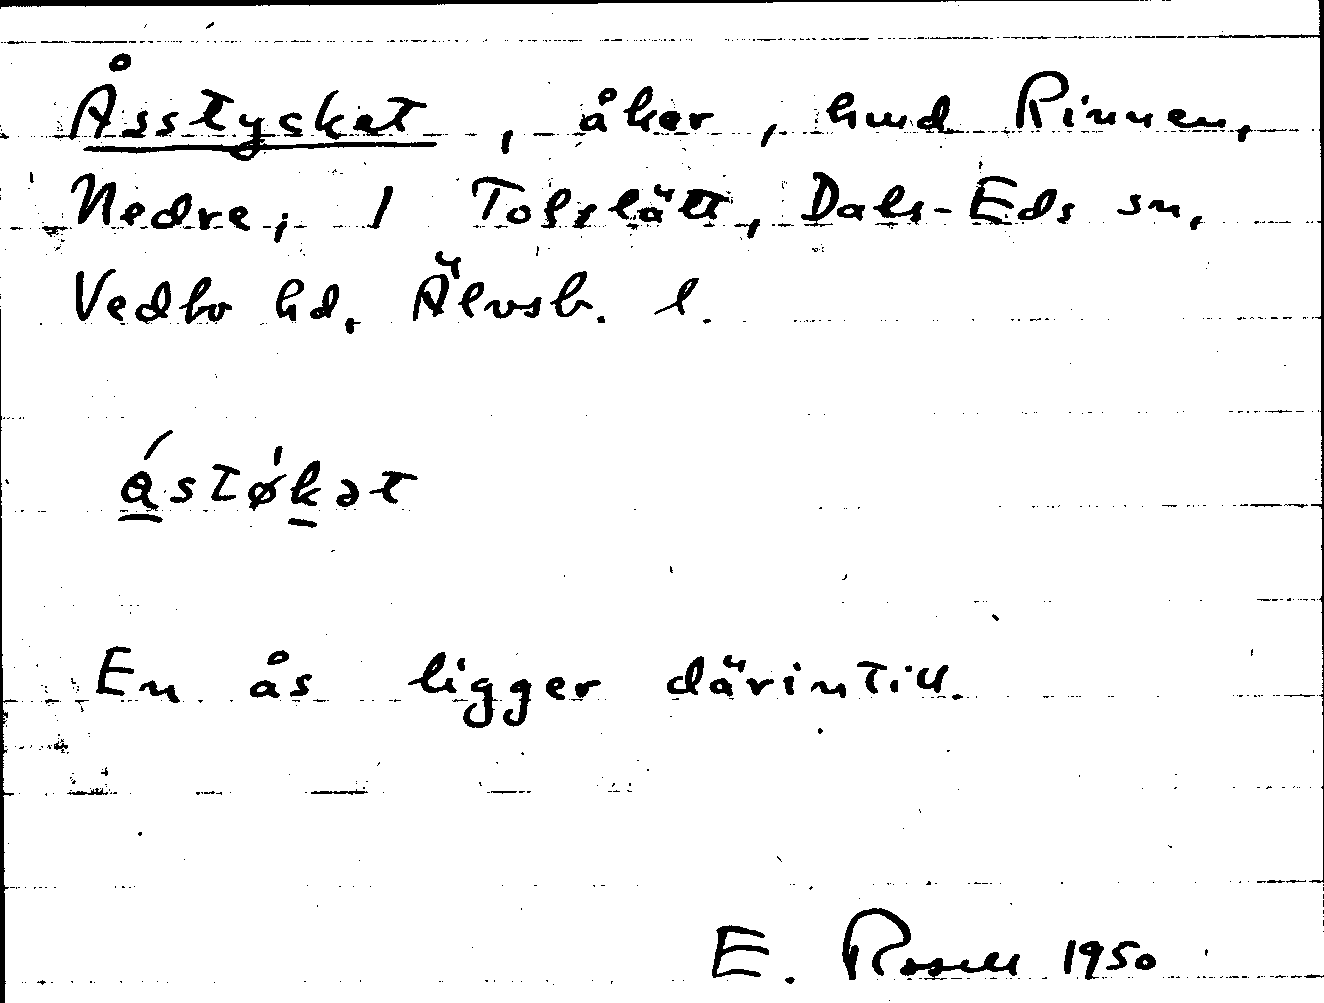 Åsstycket, åker, hmd Rinnen,
Nedre, 1 Tofslätt, Dals-Eds sn,
Vedbo hd, Älvsb. l.
ástǿkət
En ås ligger därintill.
E. Rosell 1950